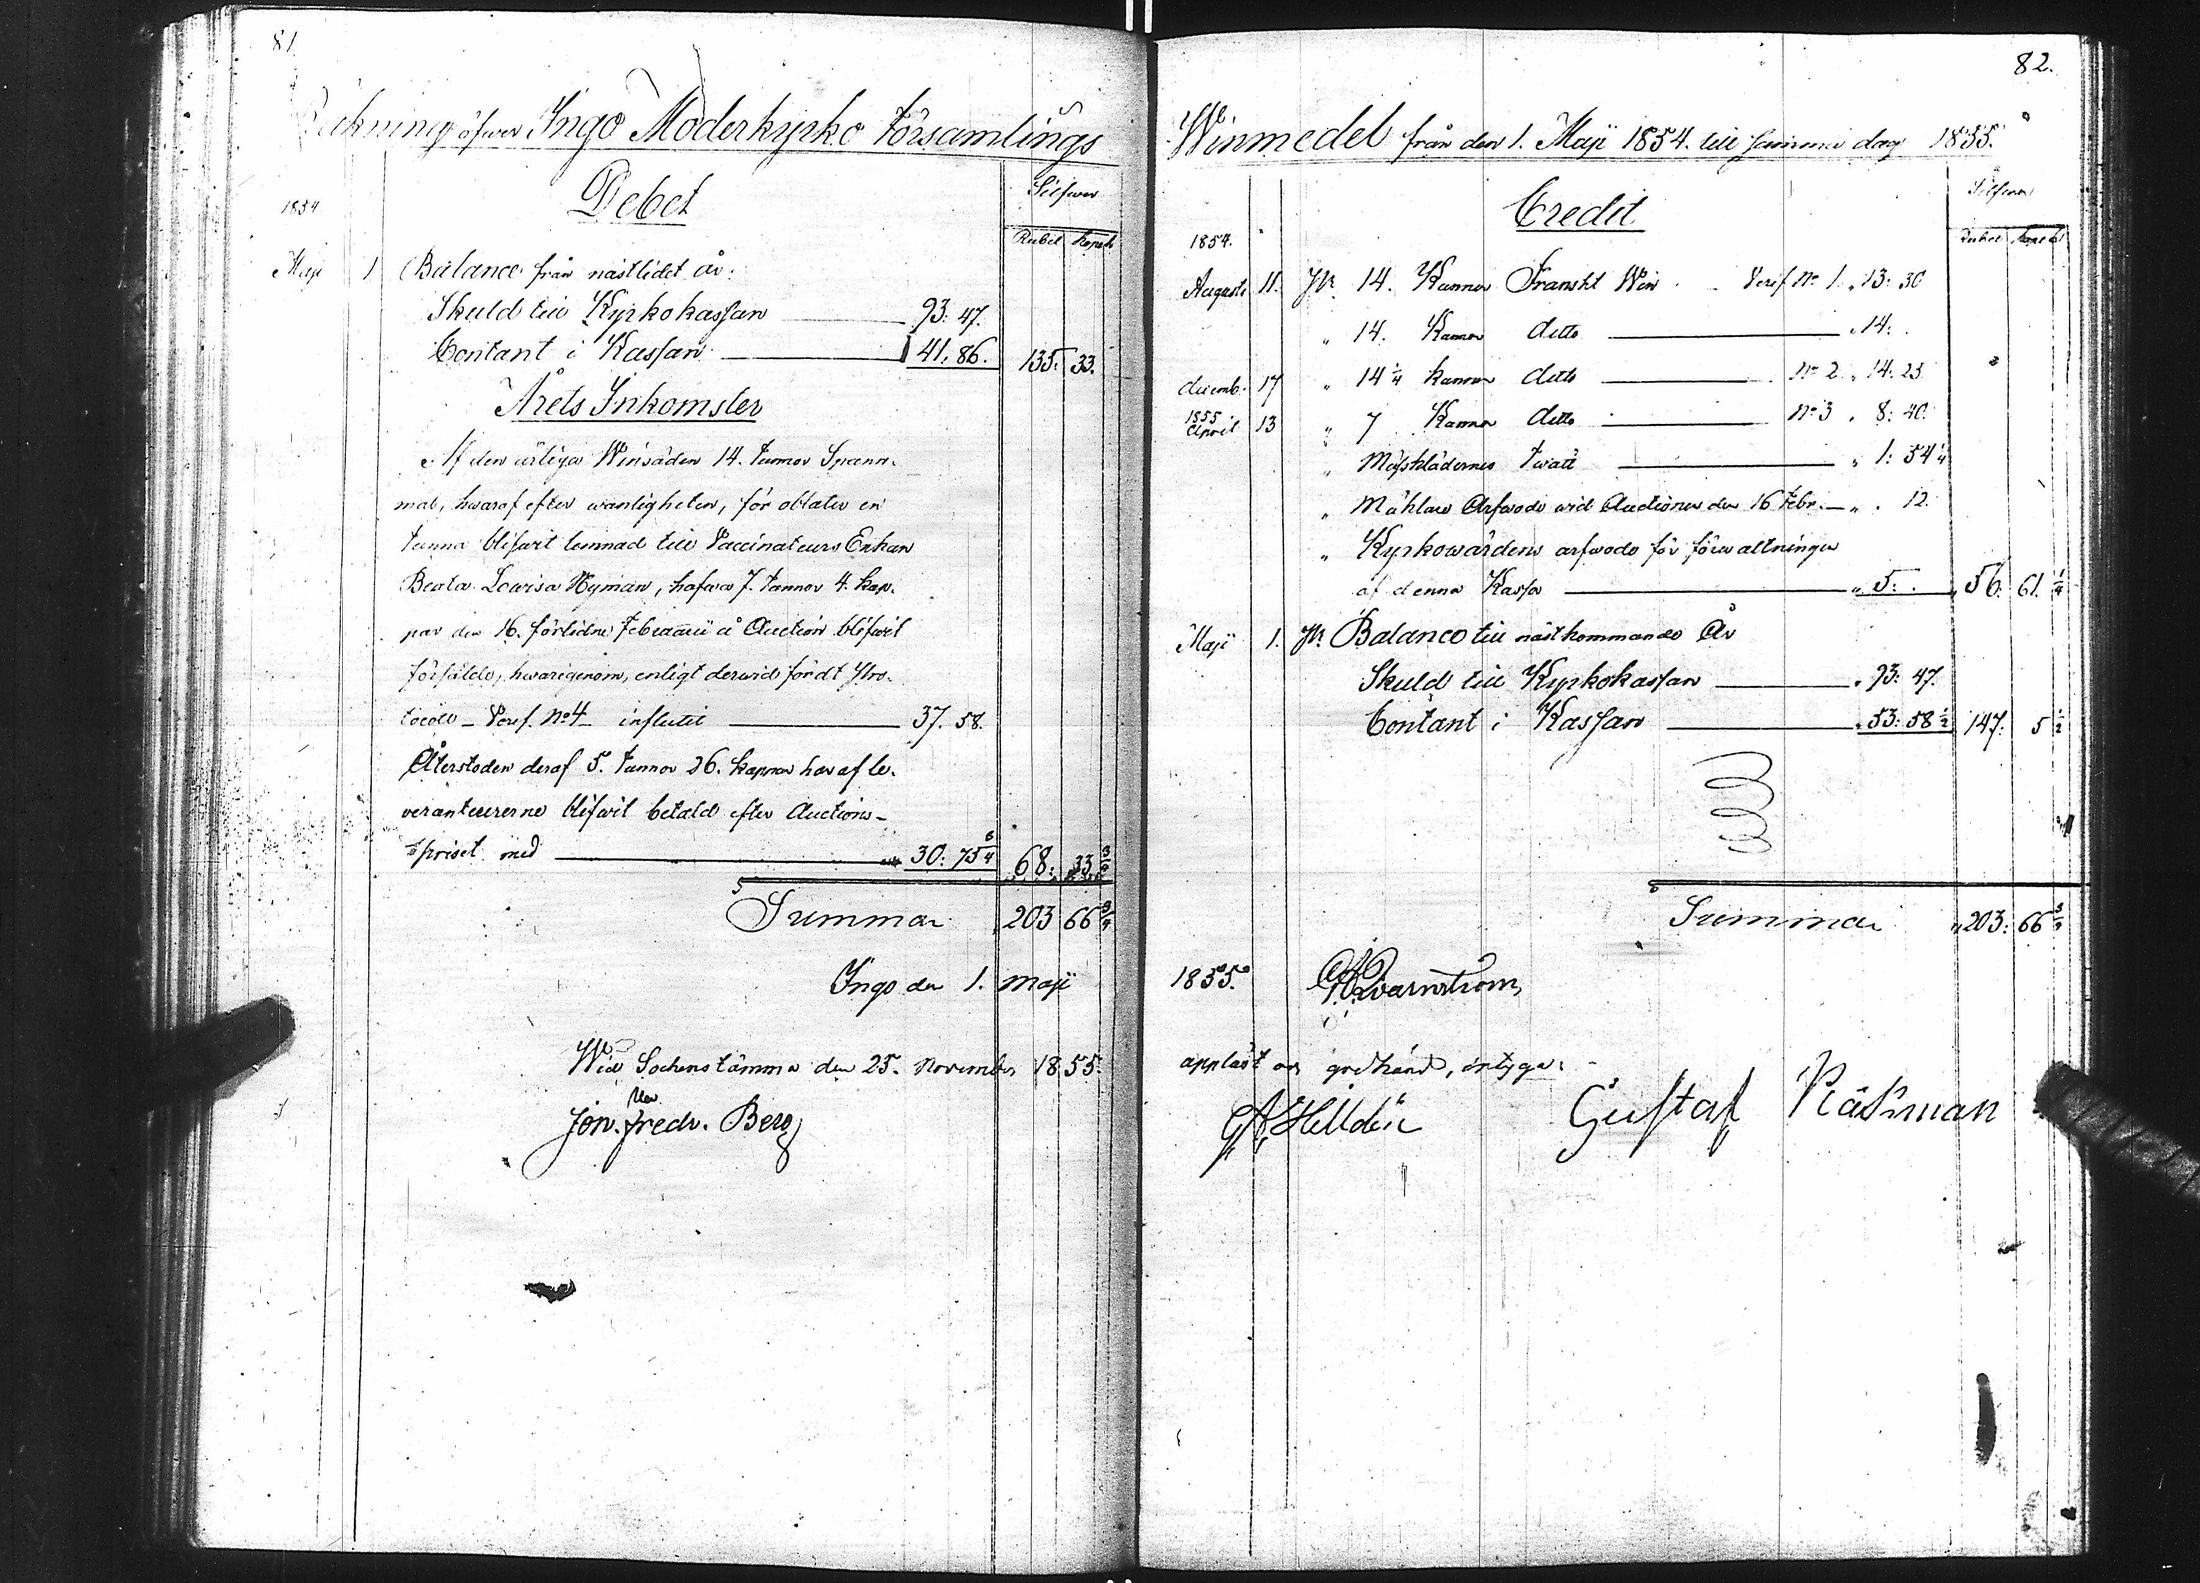 81.
Räkning öfwer Ingo Moderkyrko Församlings
Debet
Silfwer
Rubel Kopek
1854
Maji 1 Balance från nästlidet år:
Skuld till Kyrkokassan 93: 47.
Contant i Kassan 41. 86. 135. 33.
Årets Inkomster
Af den årliga Winsäden 14. tunnor Spann-
mål, hwaraf efter wanligheten, för oblater en
tunna blifwit lemnad till Vaccinateurs Enkan
Beata Lowisa Nyman, hafwa 7. tunnor 4. kap-
par den 16. förlidne Februarii å Auction blifwit
försålde, hwarigenom, enligt derwid fördt Pro-
tocoll - Verif. No 4 - influtit 37. 58.
Återstoden deraf 5. tunnor 26. kappar har af le-
veranteurerne blifwit betald efter Auctions-
priset med 30: 75 3/4 68: 33 3/4
Summa 203 66 3/4
Ingo den 1. Maji
Wid Sockenstämma den 25. November 1855.
Jon. Fredr. Berg
82.
Winmedel från den 1. Maji 1854. till samma dag 1855.
Credit
Silfwer
Rubel Kopek
1854.
Augusti 11. Pr. 14. Kannor Franskt Win Verif. No 1. 13: 30
" 14. Kannor ditto " 14: .
decemb. 17 " 14 1/4 kannor ditto No 2. " 14. 25
1855
April 13 " 7 Kannor ditto No 3 " 8: 40.
" Mässklädernes twätt " 1: 54 1/4
" Mäklare Arfwode wid Auctionen den 16 Febr. " . 12.
" Kyrkowärdens arfwode för förwaltningen
af denna Kassa " 5: . " 56: 61. 1/4
Maji 1. Pr. Balance till nästkommande År
Skuld till Kyrkokassan " 93: 47.
Contant i Kassan " 53: 58 1/2 147: 5 1/2
Summa " 203: 66 3/4
1855. Qvarnström
uppläst och godkänd, intyga:
Gustaf Råsman